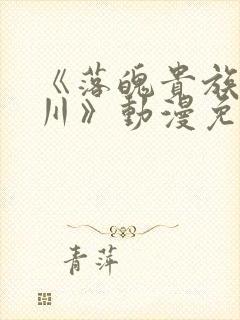 《落魄貴族
川》動漫免
青萍